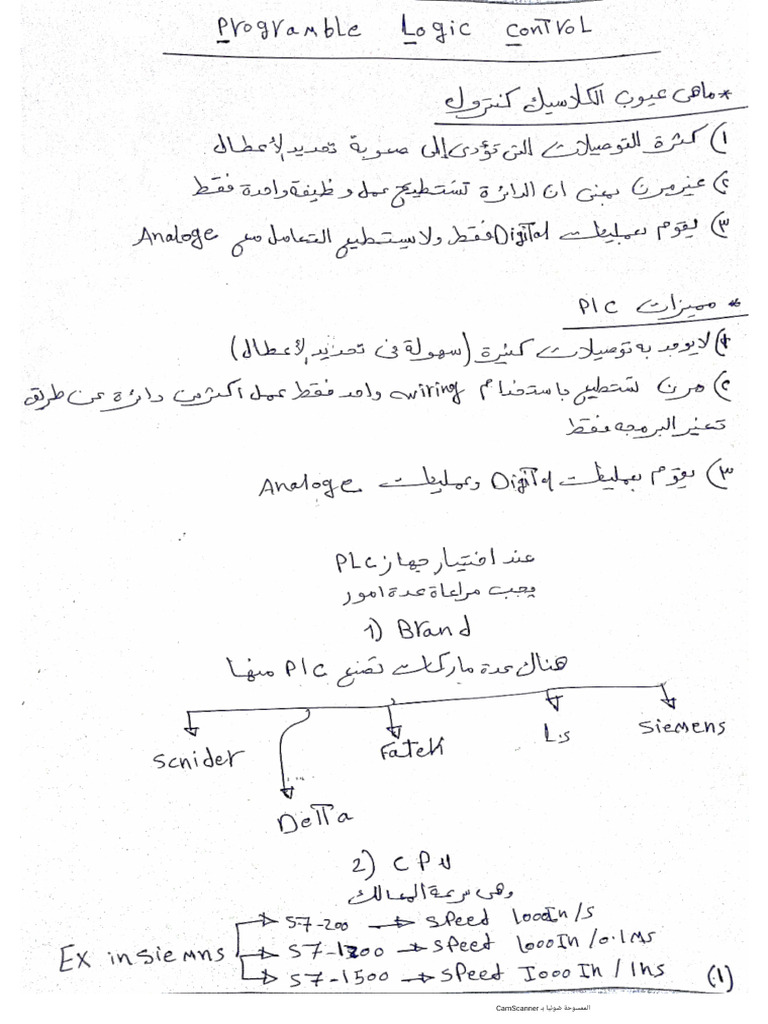 Programble Logic Control
* ماهى عيوب الكلاسيك كنترول
١) كثرة التوصيلات التى تؤدى إلى صعوبة تحديد الأعطال
٢) غير مرن بمعنى ان الدائرة تستطيع عمل وظيفة واحدة فقط
٣) يقوم بعمليات Digital فقط ولا يستطيع التعامل مع Analoge
* مميزات PLC
١) لا يوجد به توصيلات كثيرة (سهولة فى تحديد الأعطال)
٢) مرن تستطيع باستخدام wiring واحد فقط عمل اكثر من دائرة عن طريق
تغير البرمجه فقط
٣) يقوم بعمليات Digital وعمليات Analoge
عند اختيار جهاز PLC
يجب مراعاة عدة امور
1) Brand
هناك عدة ماركات تصنع PLC منها
Scnider Fatek Ls Siemens
Delta
2) CPU
وهى سرعة
Ex in Siemns
S7-200 → speed 1000In/s
S7-1200 → speed 1000In/0.1Ms
S7-1500 → speed 1000In/1ns
(1)
الممسوحة ضوئيا بـ CamScanner